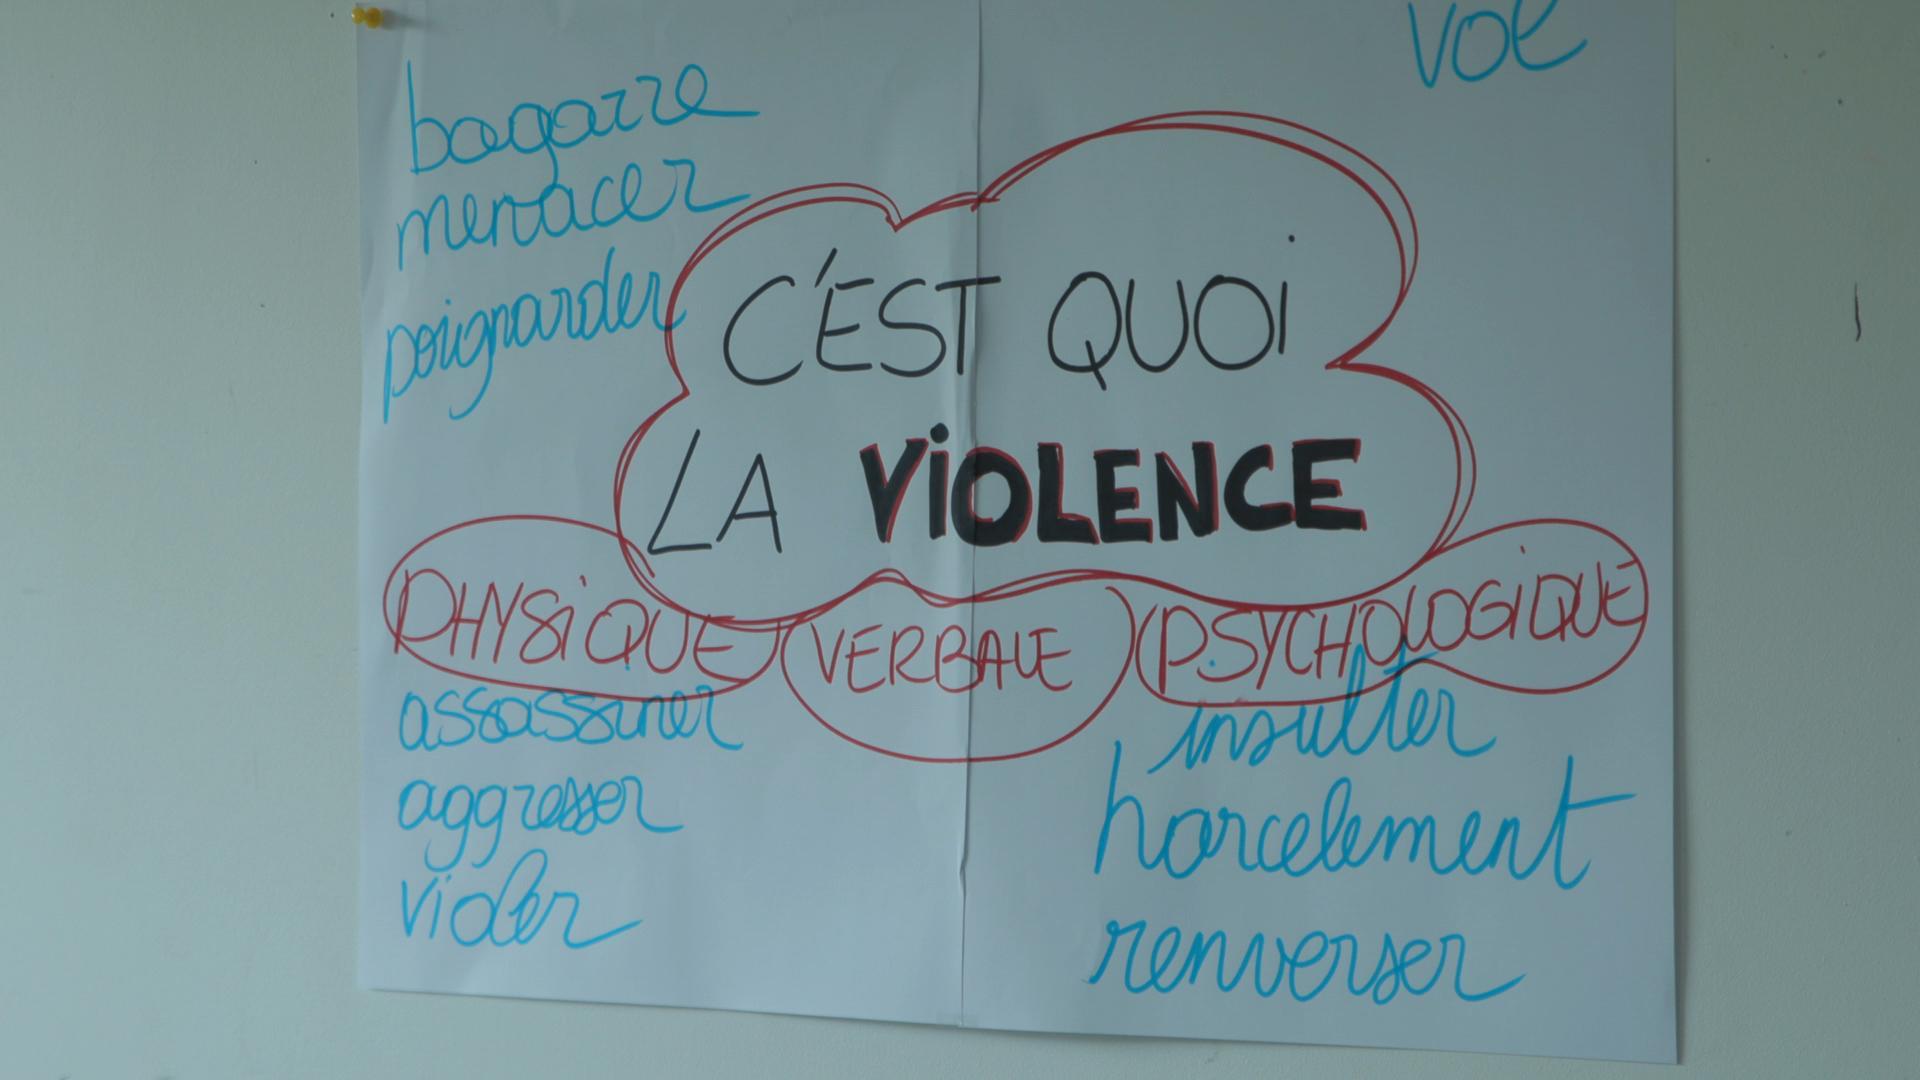 vol
bagarre
menacer
poignarder
C'EST QUOI
LA VIOLENCE
PHYSIQUE
VERBALE
PSYCHOLOGIQUE
assassiner
aggresser
violer
insulter
harcelement
renverser